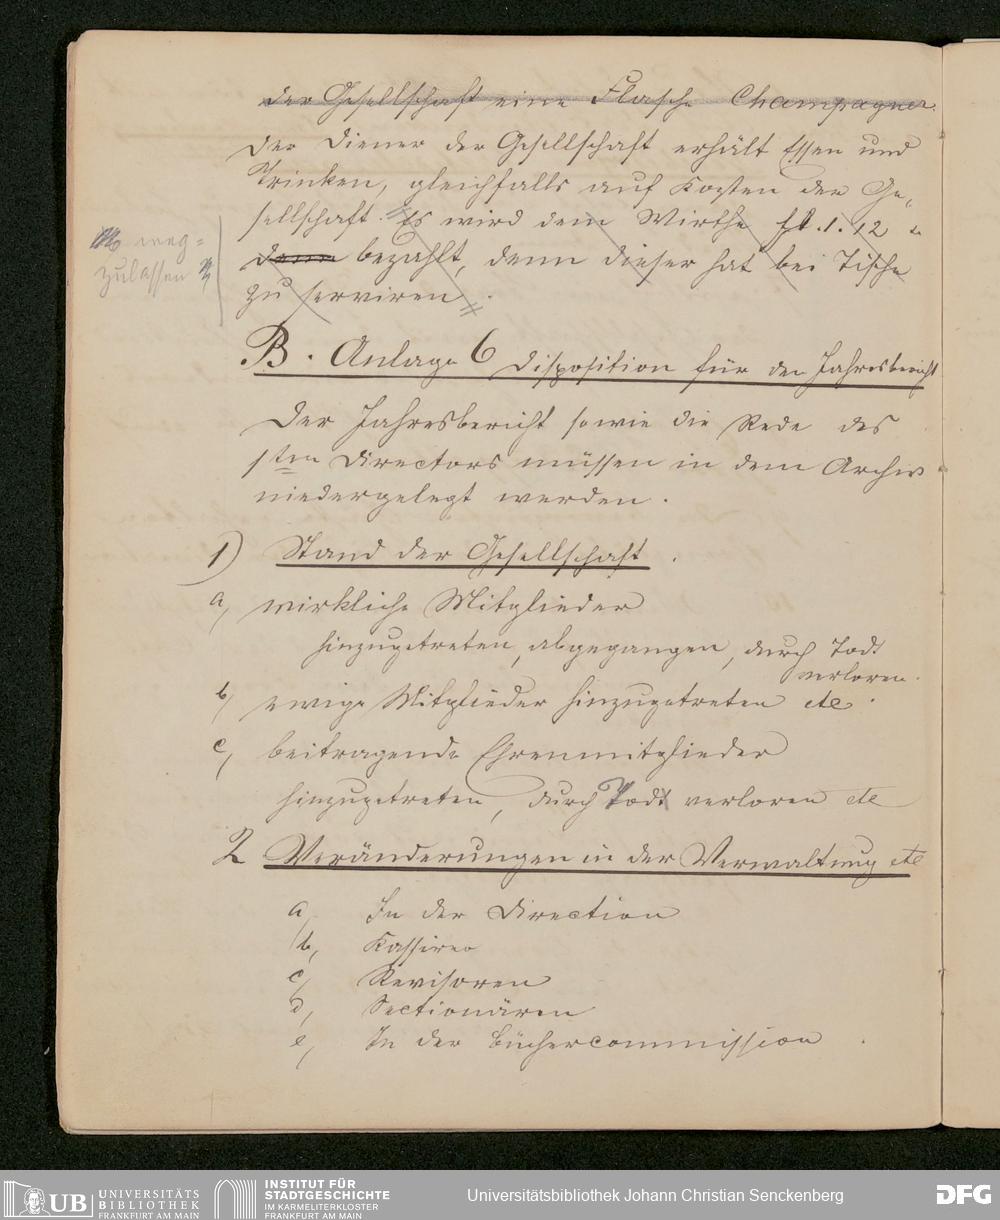 der Gesellschaft eine Flasche Champagner.
Der Diener der Gesellschaft erhält Essen und
Trinken, gleichfalls auf Kosten der Ge-
sellschaft. Es wird dem Wirthe fl. 1. 12
weg=
zulassen
denn bezahlt, denn dieser hat bei Tische
zu serviren.
B. Anlage 6 Disposition für den Jahresbericht
Der Jahresbericht sowie die Rede des
1sten Directors müssen in dem Archiv
niedergelegt werden.
1) Stand der Gesellschaft.
a, wirkliche Mitglieder
hinzugetreten, abgegangen, durch Tod
verloren.
b, ewige Mitglieder hinzugetreten etc.
c, beitragende Ehrenmitglieder
hinzugetreten, durch Tod verloren etc
2 Veränderungen in der Verwaltung etc
a, In der Direction
b, Kassirer
c, Revisoren
d, Sectionären
e, In der Büchercommission.
UB UNIVERSITÄTS
BIBLIOTHEK
FRANKFURT AM MAIN
INSTITUT FÜR
STADTGESCHICHTE
IM KARMELITERKLOSTER
FRANKFURT AM MAIN
Universitätsbibliothek Johann Christian Senckenberg
DFG